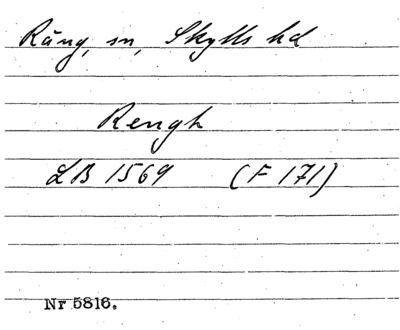 Räng, sn, Skytts hd
Rengh
LB 1569 (F 171)
Nr 5816.